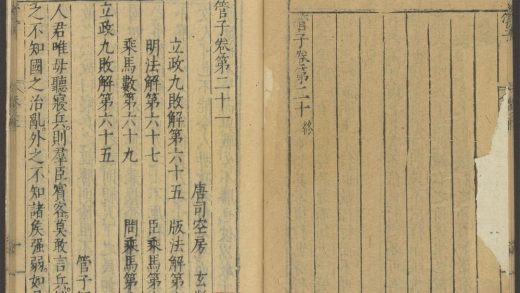 管子卷第二十 終
管子卷第二十一
唐司空房 玄
立政九敗解第六十五 版法解第
明法解第六十七 臣乘馬第
乘馬數第六十九 問乘馬第
立政九敗解第六十五
管子
人君唯毋聽寢兵則羣臣賓客莫敢言兵
之不知國之治亂外之不知諸矦强弱如